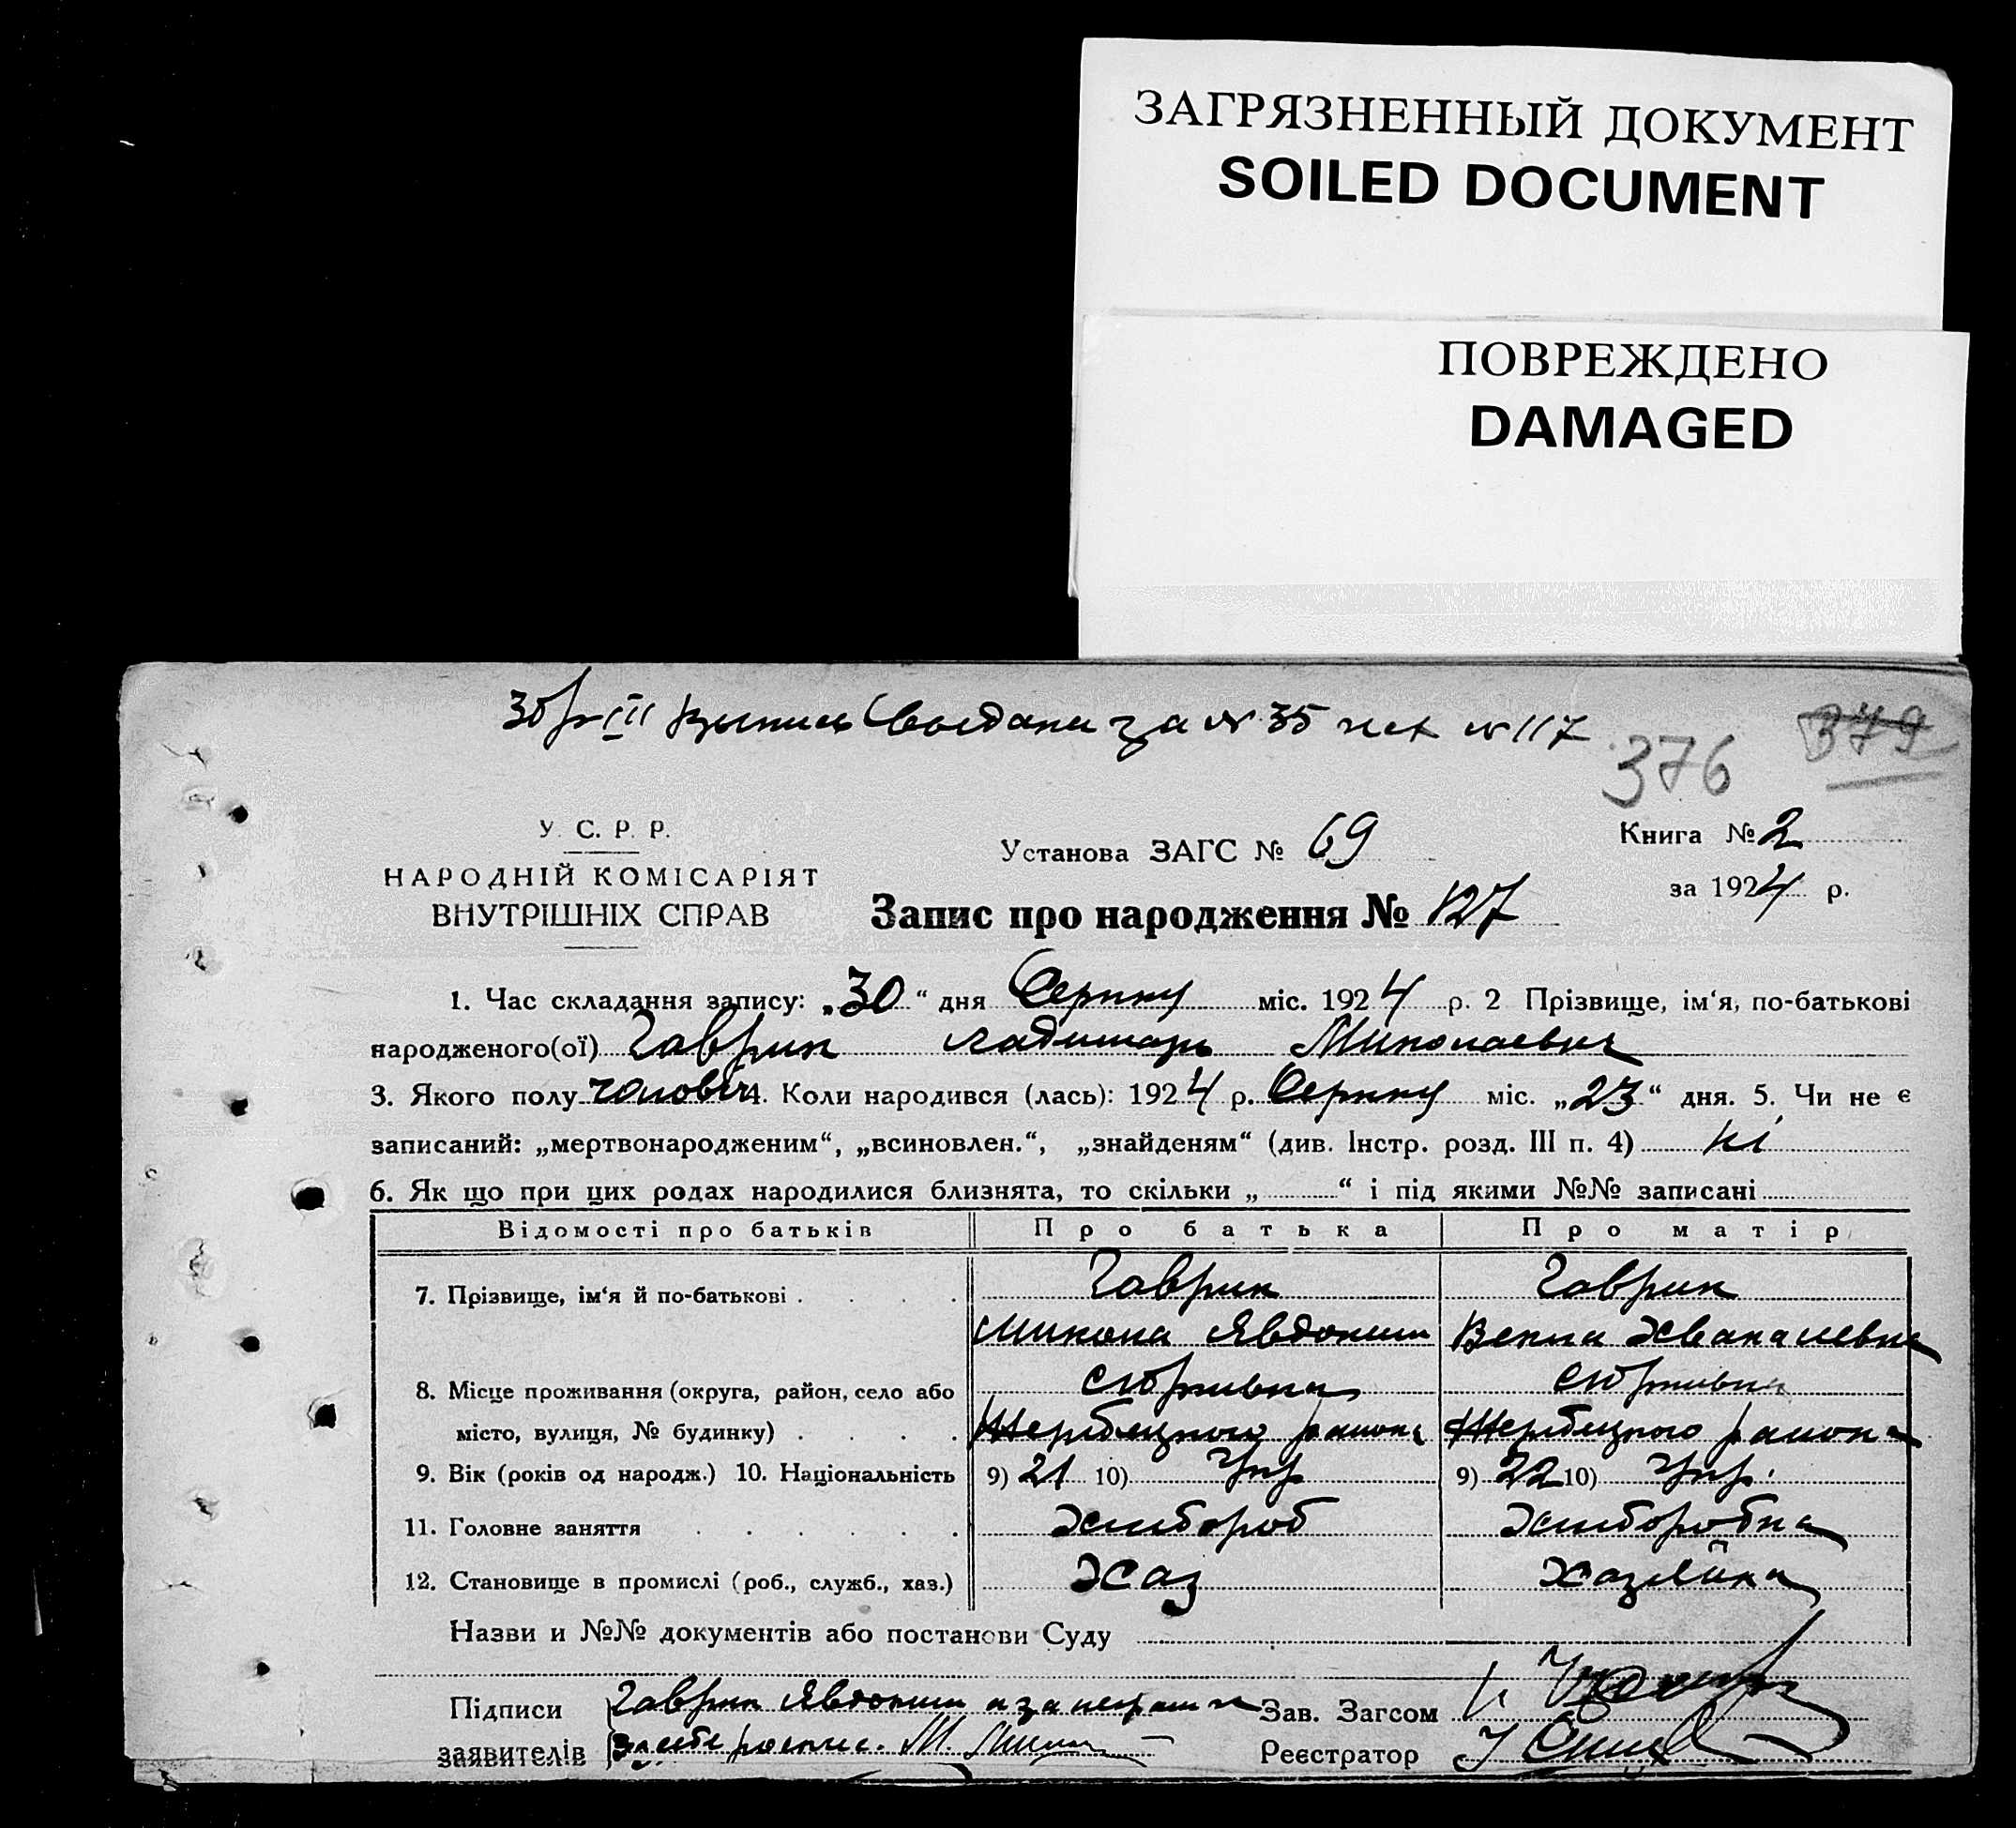 ЗАГРЯЗНЕННЫЙ ДОКУМЕНТ
SOILED DOCUMENT
ПОВРЕЖДЕНО
DAMAGED
за № 35 № 117
376 379
У. С. Р. Р.
НАРОДНІЙ КОМІСАРІЯТ
ВНУТРІШНІХ СПРАВ
Установа ЗАГС № 69
Книга № 2
за 1924 р.
Запис про народження № 127
1. Час складання запису: „30“ дня Серпну міс. 1924 р. 2 Прізвище, ім‘я, по-батькові
народженого(ої) Гаврик Миколаевич
3. Якого полу чоловіч 4. Коли народився (лась): 1924 р. Серпну міс. „23“ дня. 5. Чи не є
записаний: „мертвонародженим“, „всиновлен.“, „знайденям“ (див. Інстр. розд. III п. 4) ні
6. Як що при цих родах народилися близнята, то скільки „ “ і під якими №№ записані
Відомості про батьків Про батька Про матір
7. Прізвище, ім‘я й по-батькові Гаврик Гаврик
Микола Явдоким
8. Місце проживання (округа, район, село або
місто, вулиця, № будинку) района района
9. Вік (років од народж.) 10. Національність 9) 21 10) Укр 9) 22 10) Укр.
11. Головне заняття Хлібороб Хлiборобка
12. Становище в промислі (роб., служб., хаз.) Хаз Хазяйка
Назви и №№ документів або постанови Суду
Підписи Гаврик Явдоким а за неграм
Зав. Загсом
заявителів М.
Реєстратор